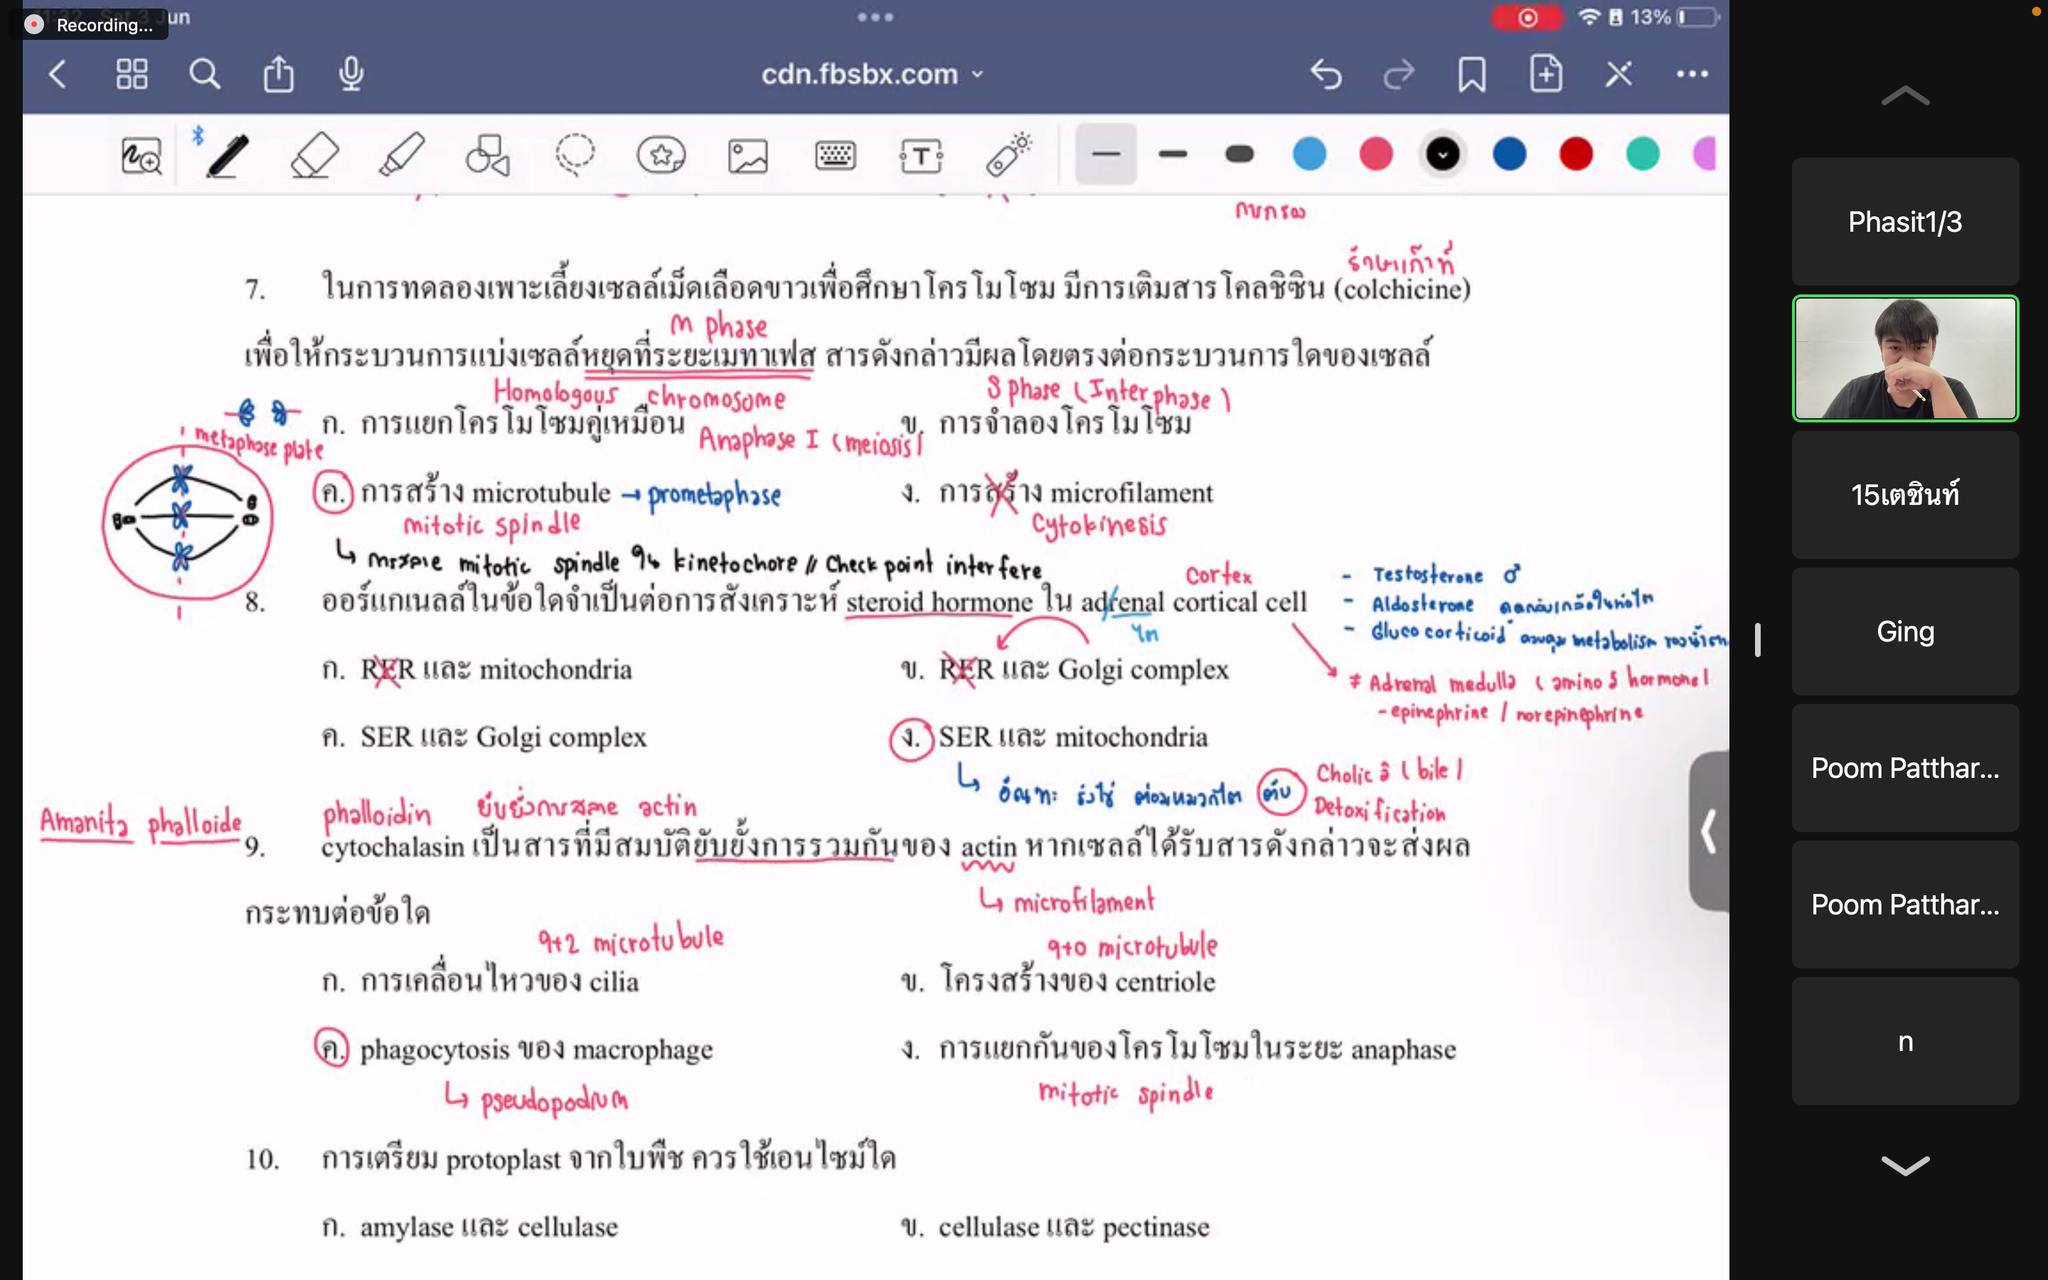 Recording...
Jun
13%
cdn.fbsbx.com
การกรอง
รักษาเก๊าท์
7. ในการทดลองเพาะเลี้ยงเซลล์เม็ดเลือดขาวเพื่อศึกษาโครโมโซม มีการเติมสารโคลชิซิน (colchicine)
M phase
เพื่อให้กระบวนการแบ่งเซลล์หยุดที่ระยะเมทาเฟส สารดังกล่าวมีผลโดยตรงต่อกระบวนการใดของเซลล์
Homologous chromosome
S phase (Interphase)
ก. การแยกโครโมโซมคู่เหมือน
Anaphase I (meiosis)
ข. การจำลองโครโมโซม
metaphase plate
ค. การสร้าง microtubule → prometaphase
ง. การสร้าง microfilament
mitotic spindle
Cytokinesis
mitotic spindle จับ kinetochore // Check point interfere
cortex
8. ออร์แกเนลล์ในข้อใดจำเป็นต่อการสังเคราะห์ steroid hormone ใน adrenal cortical cell
ไต
- Testosterone ♂
- Aldosterone ดูดกลับเกลือในท่อไต
- Glucocorticoid ควบคุม metabolism ของน้ำตาล
ก. RER และ mitochondria
ข. RER และ Golgi complex
≠ Adrenal medulla (amino δ hormone)
- epinephrine / norepinephrine
ค. SER และ Golgi complex
ง. SER และ mitochondria
อัณฑะ รังไข่ ต่อมหมวกไต ตับ
Cholic δ (bile)
Detoxification
Amanita phalloide
phalloidin ยับยั้งการสลาย actin
9. cytochalasin เป็นสารที่มีสมบัติยับยั้งการรวมกันของ actin หากเซลล์ได้รับสารดังกล่าวจะส่งผล
กระทบต่อข้อใด
microfilament
9+2 microtubule
9+0 microtubule
ก. การเคลื่อนไหวของ cilia
ข. โครงสร้างของ centriole
ค. phagocytosis ของ macrophage
ง. การแยกกันของโครโมโซมในระยะ anaphase
pseudopodium
mitotic spindle
10. การเตรียม protoplast จากใบพืช ควรใช้เอนไซม์ใด
ก. amylase และ cellulase
ข. cellulase และ pectinase
Phasit1/3
15เตชินท์
Ging
Poom Patthar...
Poom Patthar...
n